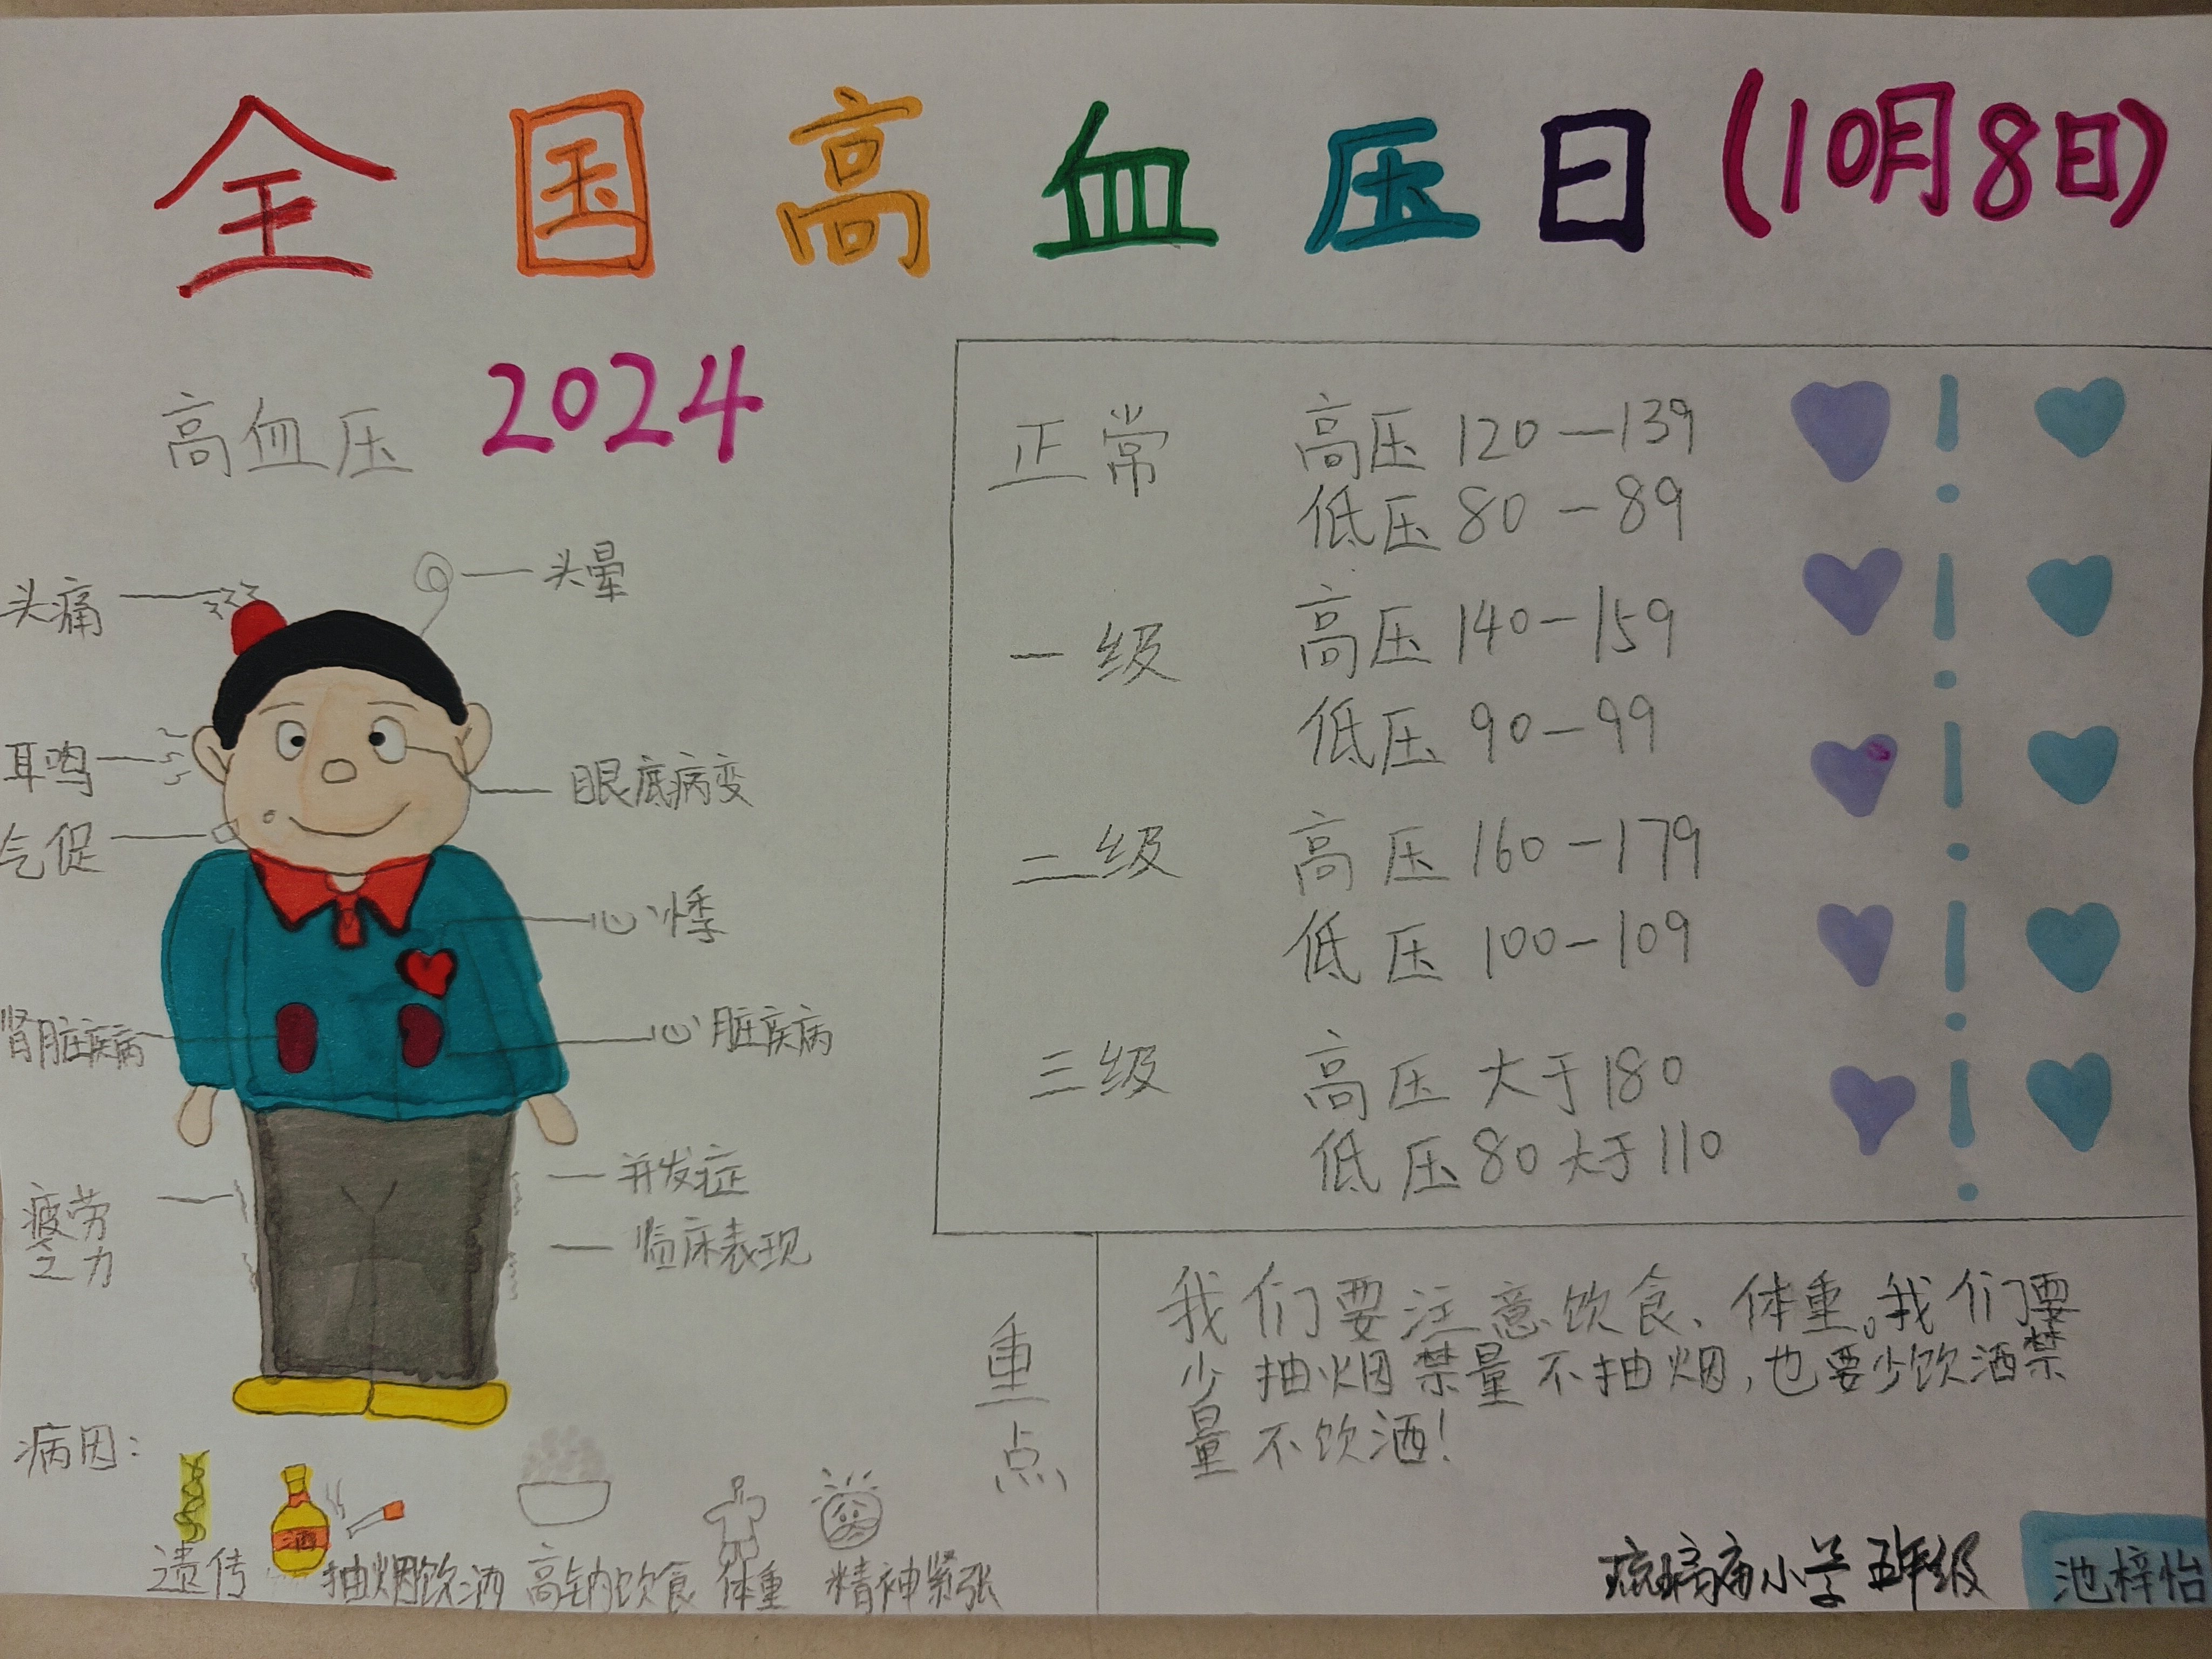 全国高血压日(10月8日)
高血压 2024
头痛
头晕
耳鸣
眼底病变
气促
心悸
肾脏疾病
心脏疾病
疲劳
乏力
并发症
临床表现
病因:
酒
遗传
抽烟饮酒
高钠饮食
体重
精神紧张
正常
高压 120—139
低压 80—89
一级
高压 140—159
低压 90—99
二级
高压 160—179
低压 100—109
三级
高压 大于180
低压 80大于110
重点
我们要注意饮食、体重。我们要
少抽烟禁量不抽烟,也要少饮酒禁
量不饮酒!
小学五年级
池梓怡